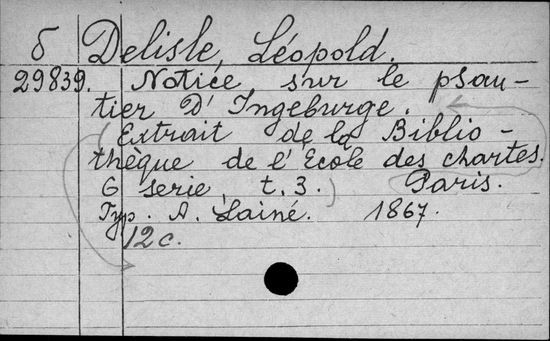 б Delisle, Léopold.
29839. Notice sur le psau-
tier D'Ingeburge.
(Extrait de la Biblio-
thèque de l'Ecole des chartes.
6 serie, t. 3.) Paris.
Typ. A. Lainé. 1867.
12 c.